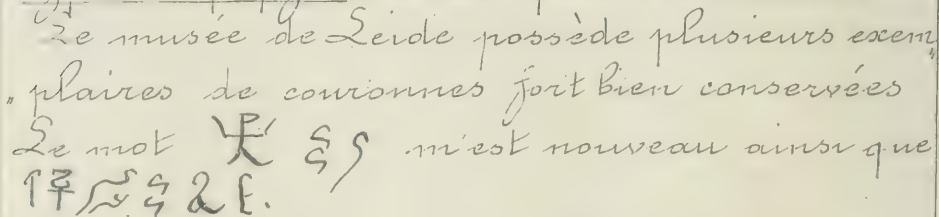 Le musée de Leide possède plusieurs exem
" plaires de couronnes fort bien conservées "
Le mot m'est nouveau ainsi que